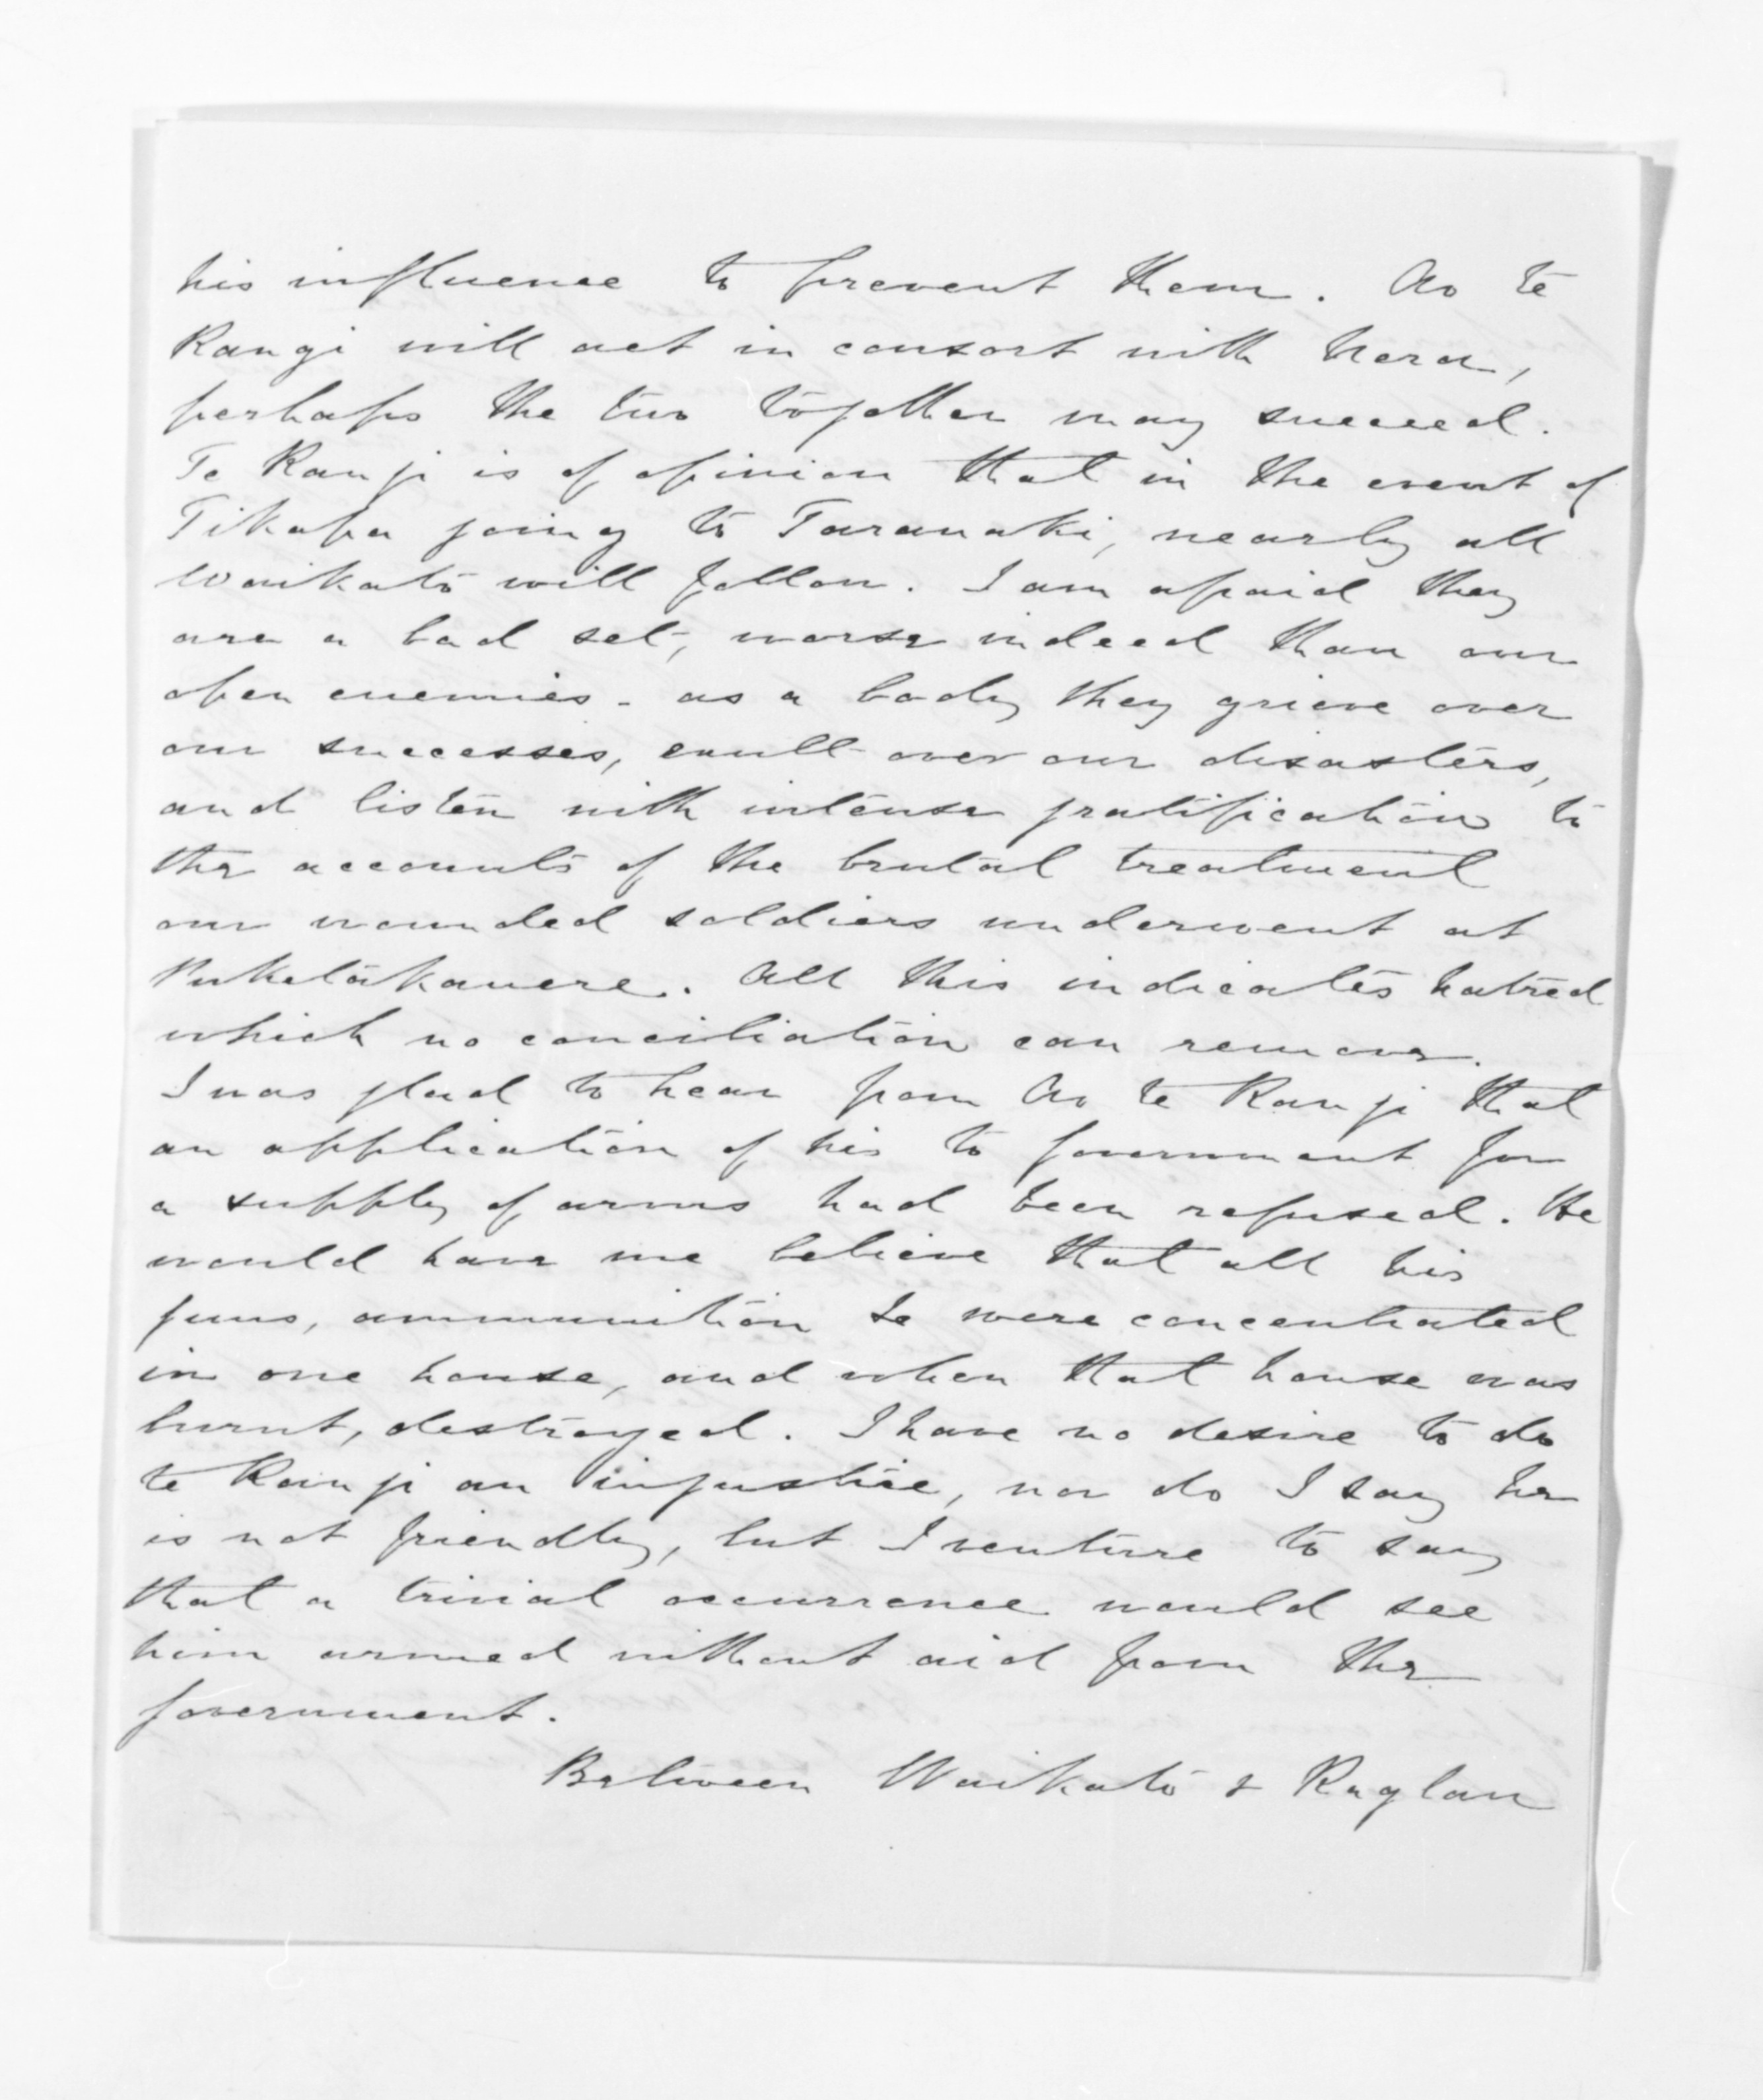 his influence to prevent them. Ao te
Rangi will act in consort with Nera,
perhaps the two together may succeed.
Te Rangi is of opinion that in the event of
Tikapa going to Taranaki, nearly all
Waikato will follow. I am afraid they
are a bad set, worse indeed than our
open enemies - as a body they grieve over
our successes, exult over our disasters,
and listen with intense gratification to
the accounts of the brutal treatment
our wounded soldiers underwent at
Puketakauere. All this indicates hatred
which no conciliation can remove.
I was glad to hear from Ao te Rangi that
an application of his to government for
a supply of arms had been refused. He
would have me believe that all his
guns, ammunition &c were concentrated
in one house, and when that house was
burnt, destroyed. I have no desire to do
te Rangi an injustice, nor do I say he
is not friendly, but I venture to say
that a trivial occurrence would see
him armed without aid from the
government.
Between Waikato & Raglan